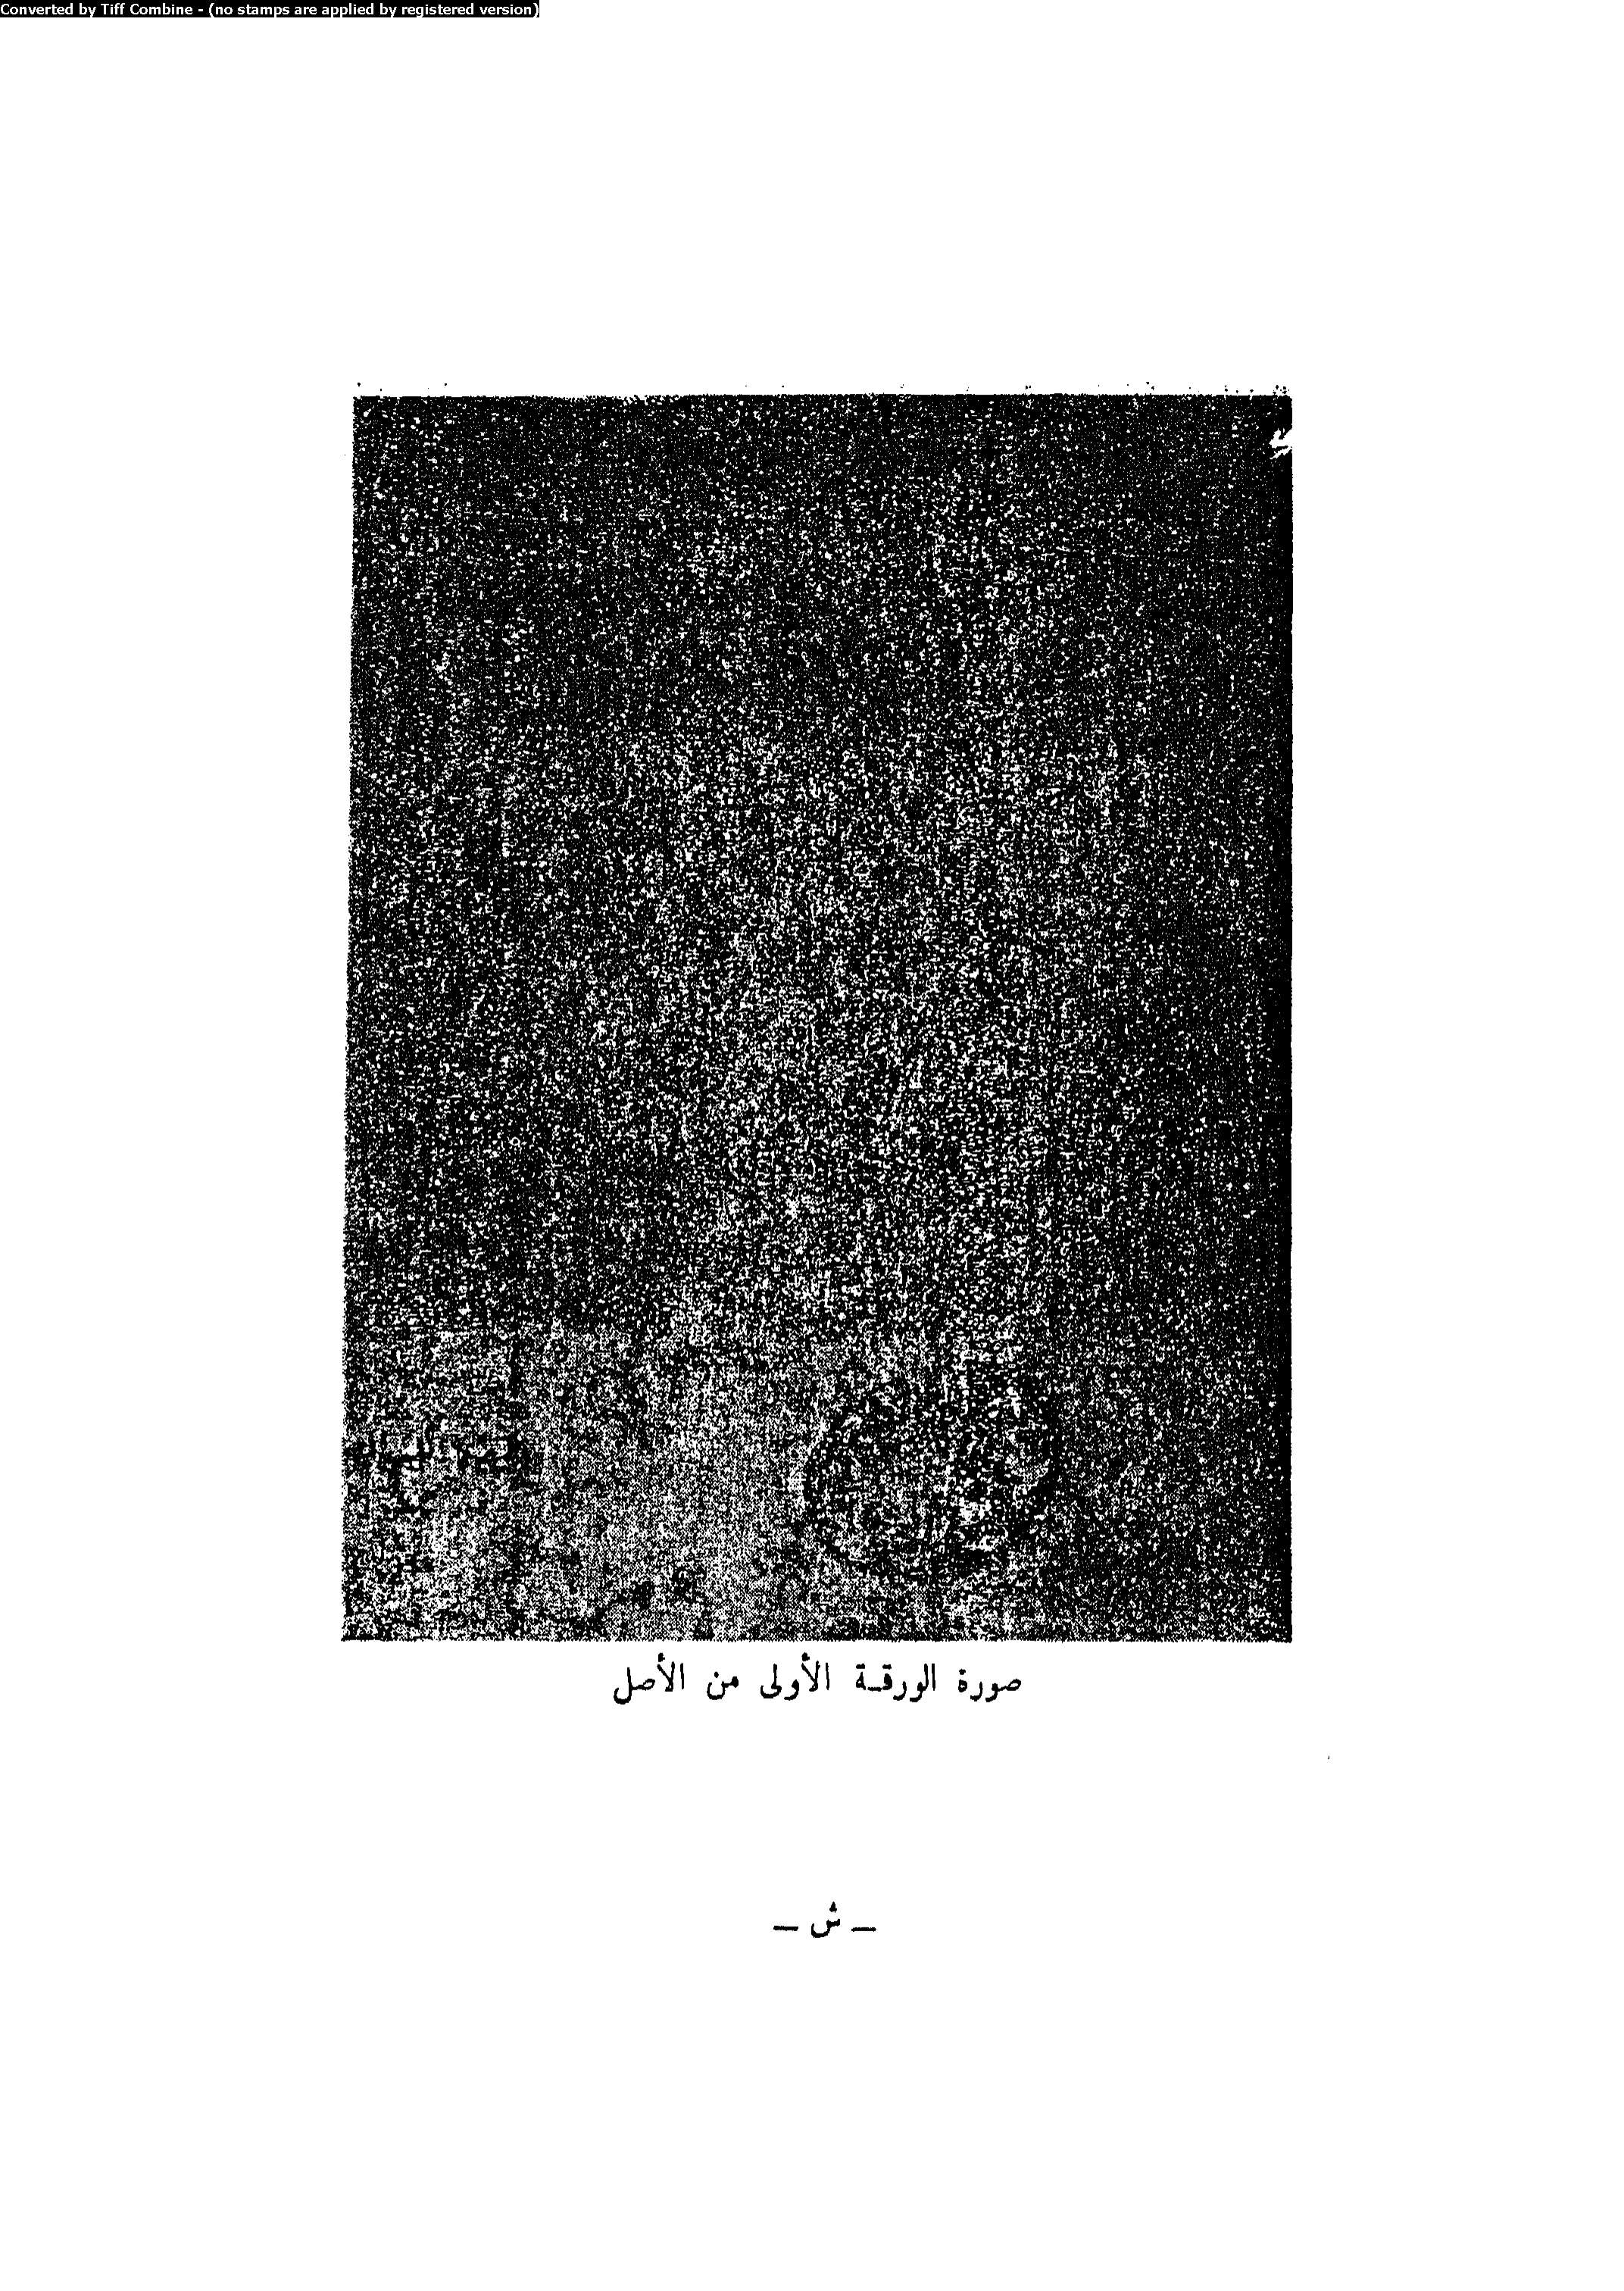 Converted by Tiff Combine - (no stamps are applied by registered version)
صورة الورقة الأولى من الأصل
ـ ش ـ